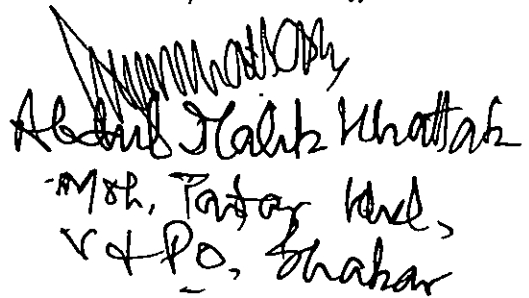 Abdul Malik Khattak
Moh, Patar Khel,
V & PO, Shakar